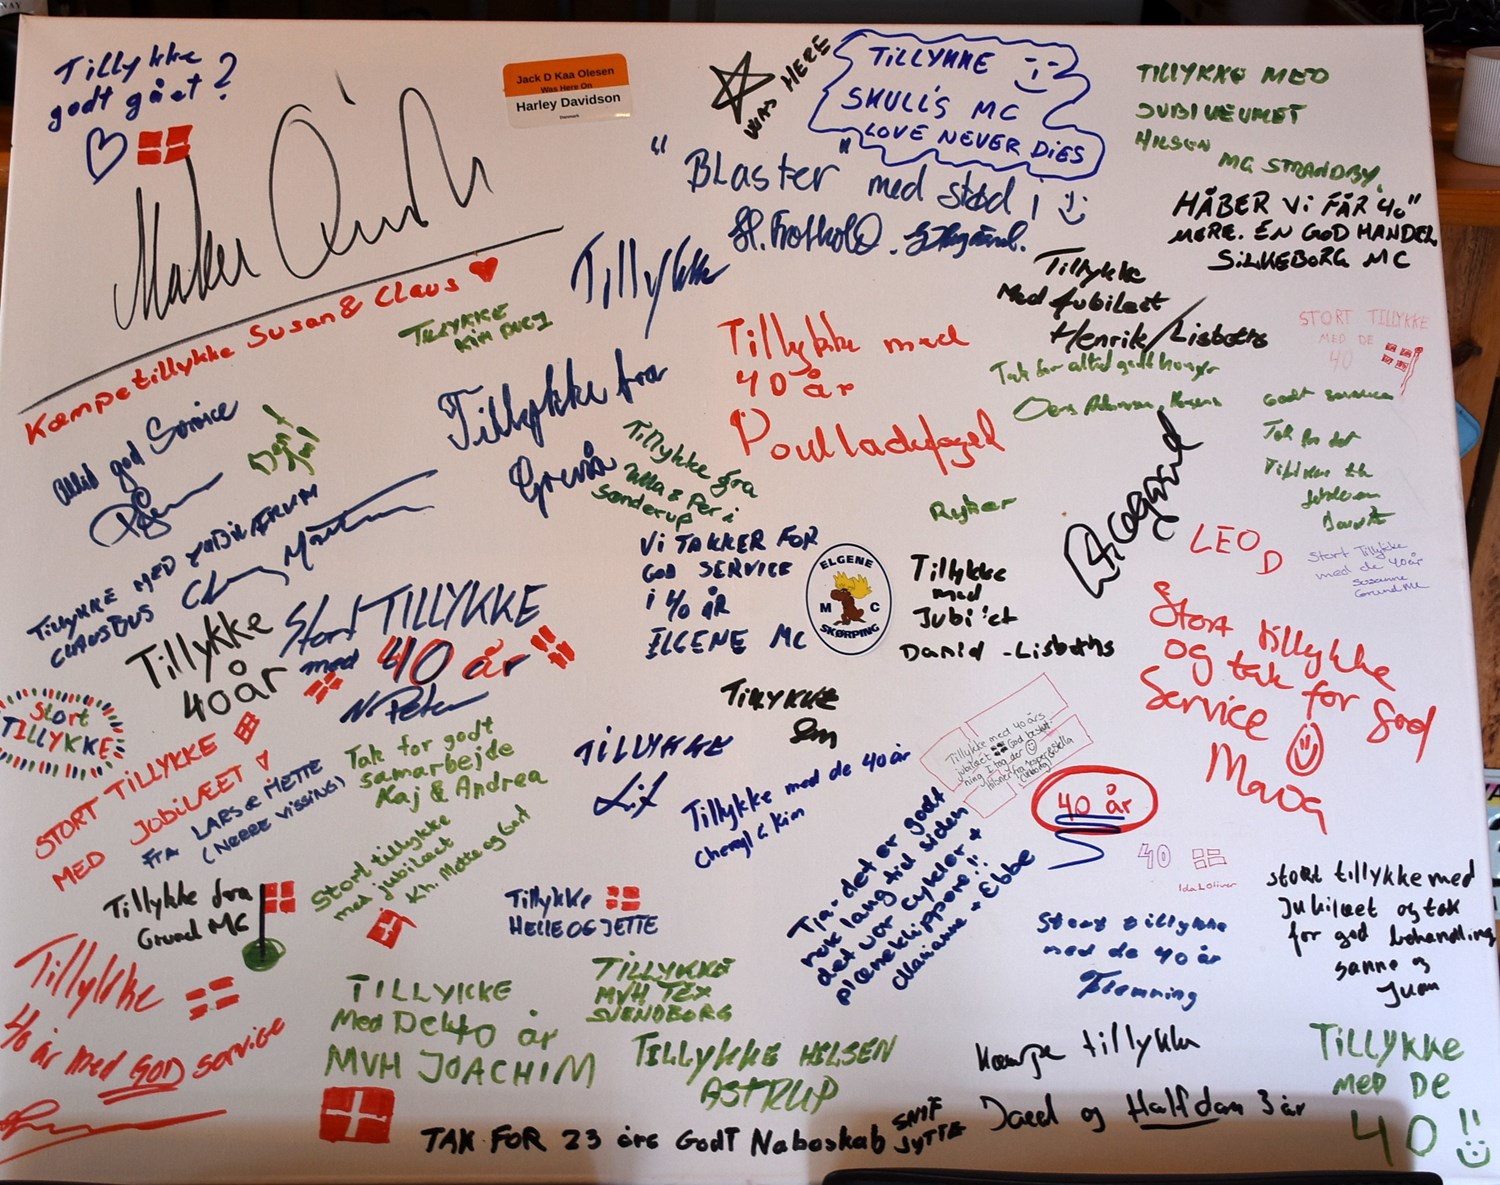 Tillykke
godt gået?
Jack D Kaa Olesen
Was Here On
Harley Davidson
Danmark
WAS HERE
TILLYKKE
SKULL'S MC
LOVE NEVER DIES
TILLYKKE MED
JUBILÆUMET
HILSEN
MC STRANDBY.
"Blaster" med stød i
HÅBER Vi FÅR 40"
MERE. EN GOD HANDEL
SILKEBORG MC
Kæmpetillykke Susan & Claus
TILLYKKE
Tillykke
Tillykke
Med jubilæet
Henrik/Lisbeths
STORT TILLYKKE
MED DE
40
Tillykke med
40 år
Poul Ladefogel
Tak for altid godt humør
Godt service
Tak for det
Altid god Service
Tillykke fra
Grenå
Tillykke fra
Ulla & Per i
Sønderup
Ryker
TILLYKKE MED JUBILÆRUM
CLAUS BUS
VI TAKKER FOR
GOD SERVICE
i 40 ÅR
ELGENE MC
ELGENE
MC
SKØRPING
Tillykke
med
Jubi'et
David - Lisbeths
LEO D
Stort Tillykke
med de 40 år
Susanne
Grund MC
Tillykke
40 år
Stort TILLYKKE
med 40 år
N Peter
Stort tillykke
og tak for god
Service
Stort
TILLYKKE
STORT TILLYKKE
MED JUBILÆET
FRA LARS & METTE
(NERRE VISSING)
Tak for godt
samarbejde
Kaj & Andrea
TILLYKKE
TILLYKKE
Tillykke med de 40 år
Cheryl & Kim
Tillykke med 40 års
jubilæet
God bestilt-
ning I tog der
40 år
Stort tillykke
med jubilæet
Kh. Mette og Gert
Tja - det er godt
nok lang tid siden
det var cykler +
plæneklippere!!
Marianne + Ebbe
40
Ida & Oliver
Tillykke fra
Grund MC
Tillykke
HELLE OG JETTE
Stort tillykke
med de 40 år
Flemming
stort tillykke med
Jubilæet og tak
for god behandling
Sanne og
Juan
Tillykke
40 år med GOD service
TILLYKKE
Med De 40 år
MVH JOACHIM
TILLYKKE
MVH TEX
SVENDBORG
TILLYKKE HILSEN
ASTRUP
Kæmpe tillykke
og Halfdan 3 år
TILLYKKE
MED DE
40!!
TAK FOR 23 års GODT Naboskab
JYTTE